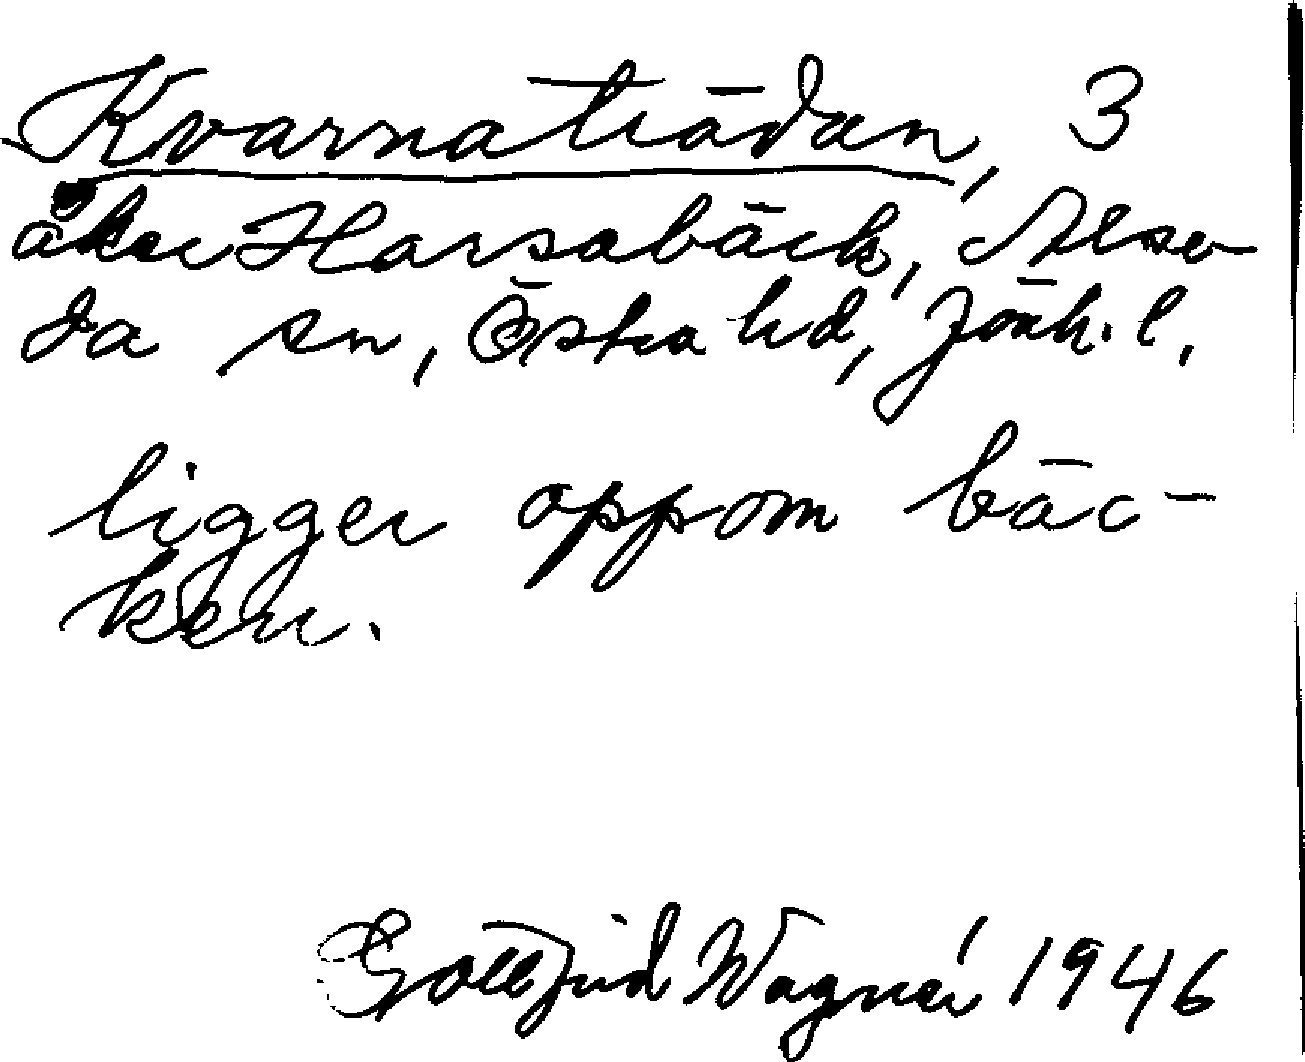 Kvarnaträdan, 3
åker Harsabäck, Alse-
da sn, Östra hd, Jönk. l.
ligger oppom bäc-
ken.
Gottfrid Wagnér 1946